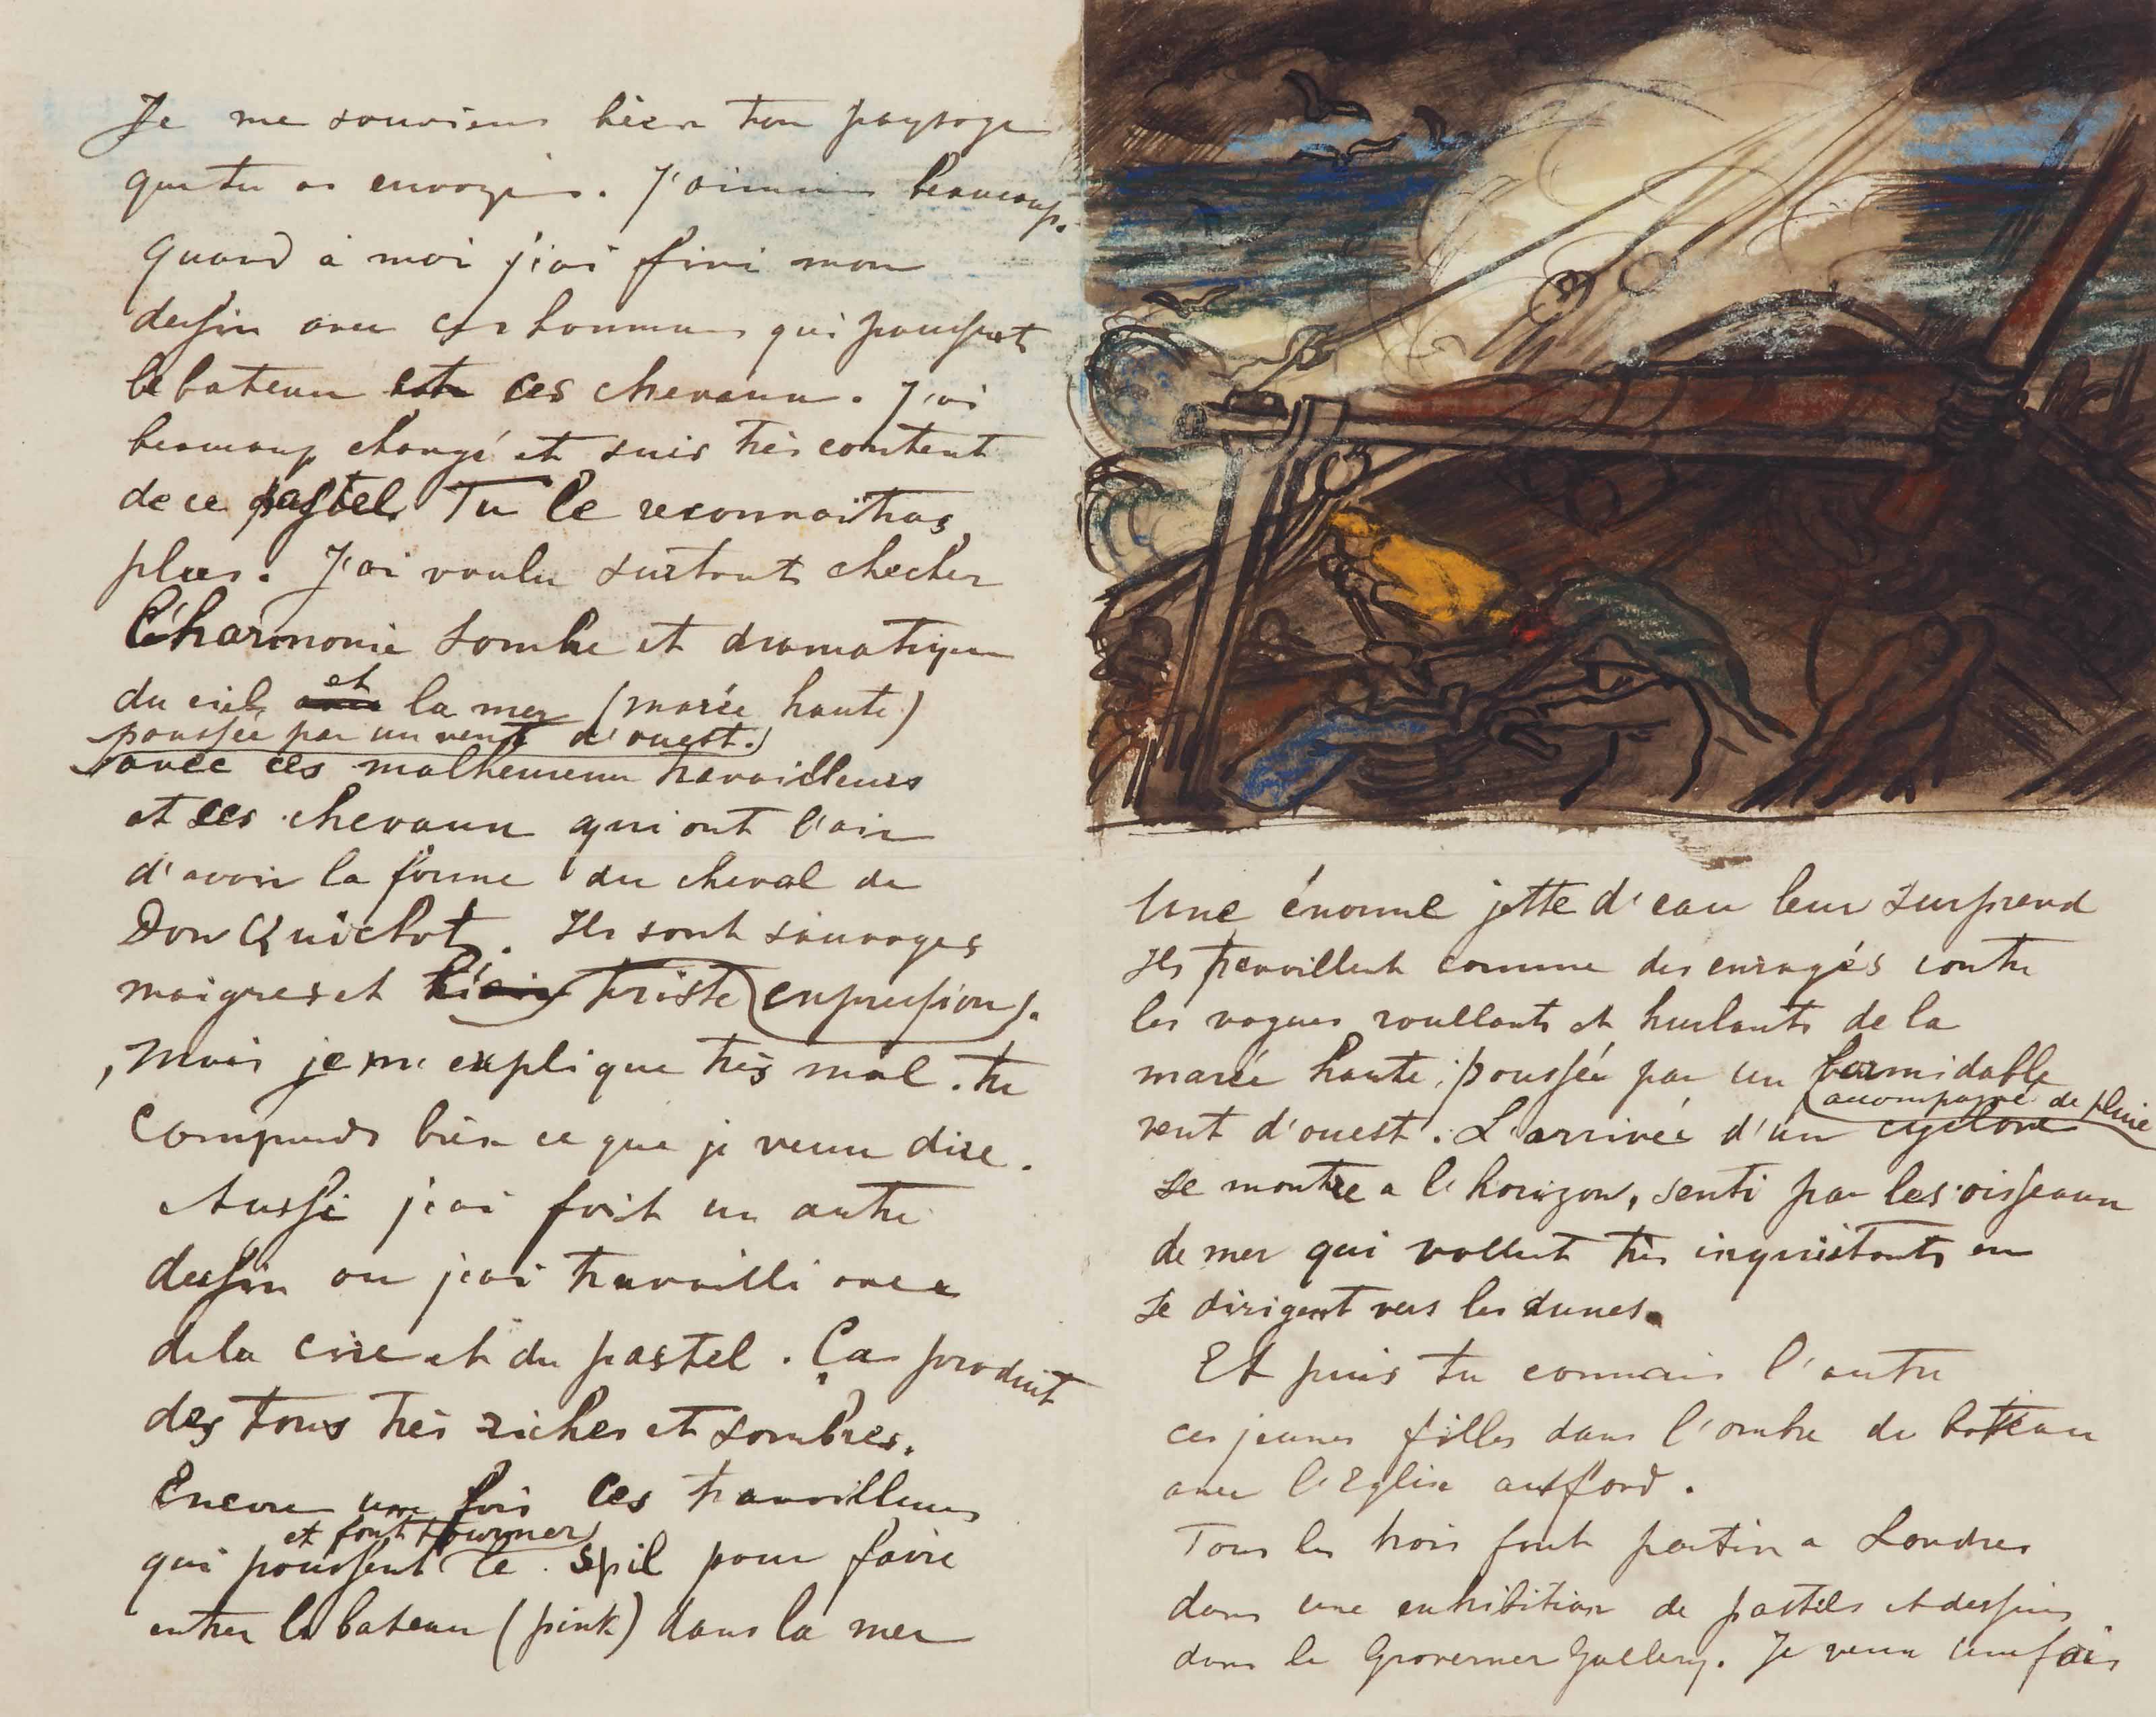 Je me souviens bien ton paysage
que tu as envoyée. J'aimais beaucoup.
Quand à moi j'ai fini mon
dessin avec ces hommes qui poussent
le bateau et ces chevaux. J'ai
beaucoup changé et suis très content
de ce pastel. Tu le reconnaîtras
plus. J'ai voulu surtout checher
l'harmonie sombre et dramatique
du ciel et la mer (marée haute)
poussée par un vent d'ouest.)
avec ces malheureux travailleurs
et ces chevaux qui ont l'air
d'avoir la forme du cheval de
Don Quichot. Ils sont sauvages
maigres et triste (expression).
Mais je m'explique très mal. tu
comprends bien ce que je veux dire.
Aussi j'ai fait un autre
dessin ou j'ai travaillé avec
de la cire et du pastel. Ça produit
des tons très riches et sombres.
Encore une fois ces travailleurs
et font tourner
qui poussent le spil pour faire
entrer le bateau (pink) dans la mer
Une énorme jette d'eau leur surprend
Ils travaillent comme des enragés contre
les vagues roullants et hurlants de la
marée haute, poussée par un formidable
accompagné de pluie
vent d'ouest. L'arrivée d'un cyclone
se montre a l'horizon, senti par les oisseaux
de mer qui vollent très inquiétants en
se dirigent vers les dunes.
Et puis tu connais l'autre
ces jeunes filles dans l'ombre de bateau
avec l'Eglise au fond.
Tous les trois font partie a Londres
dans une exhibition de pastels et dessins
dans le Groverner Gallery. Je veux une fois